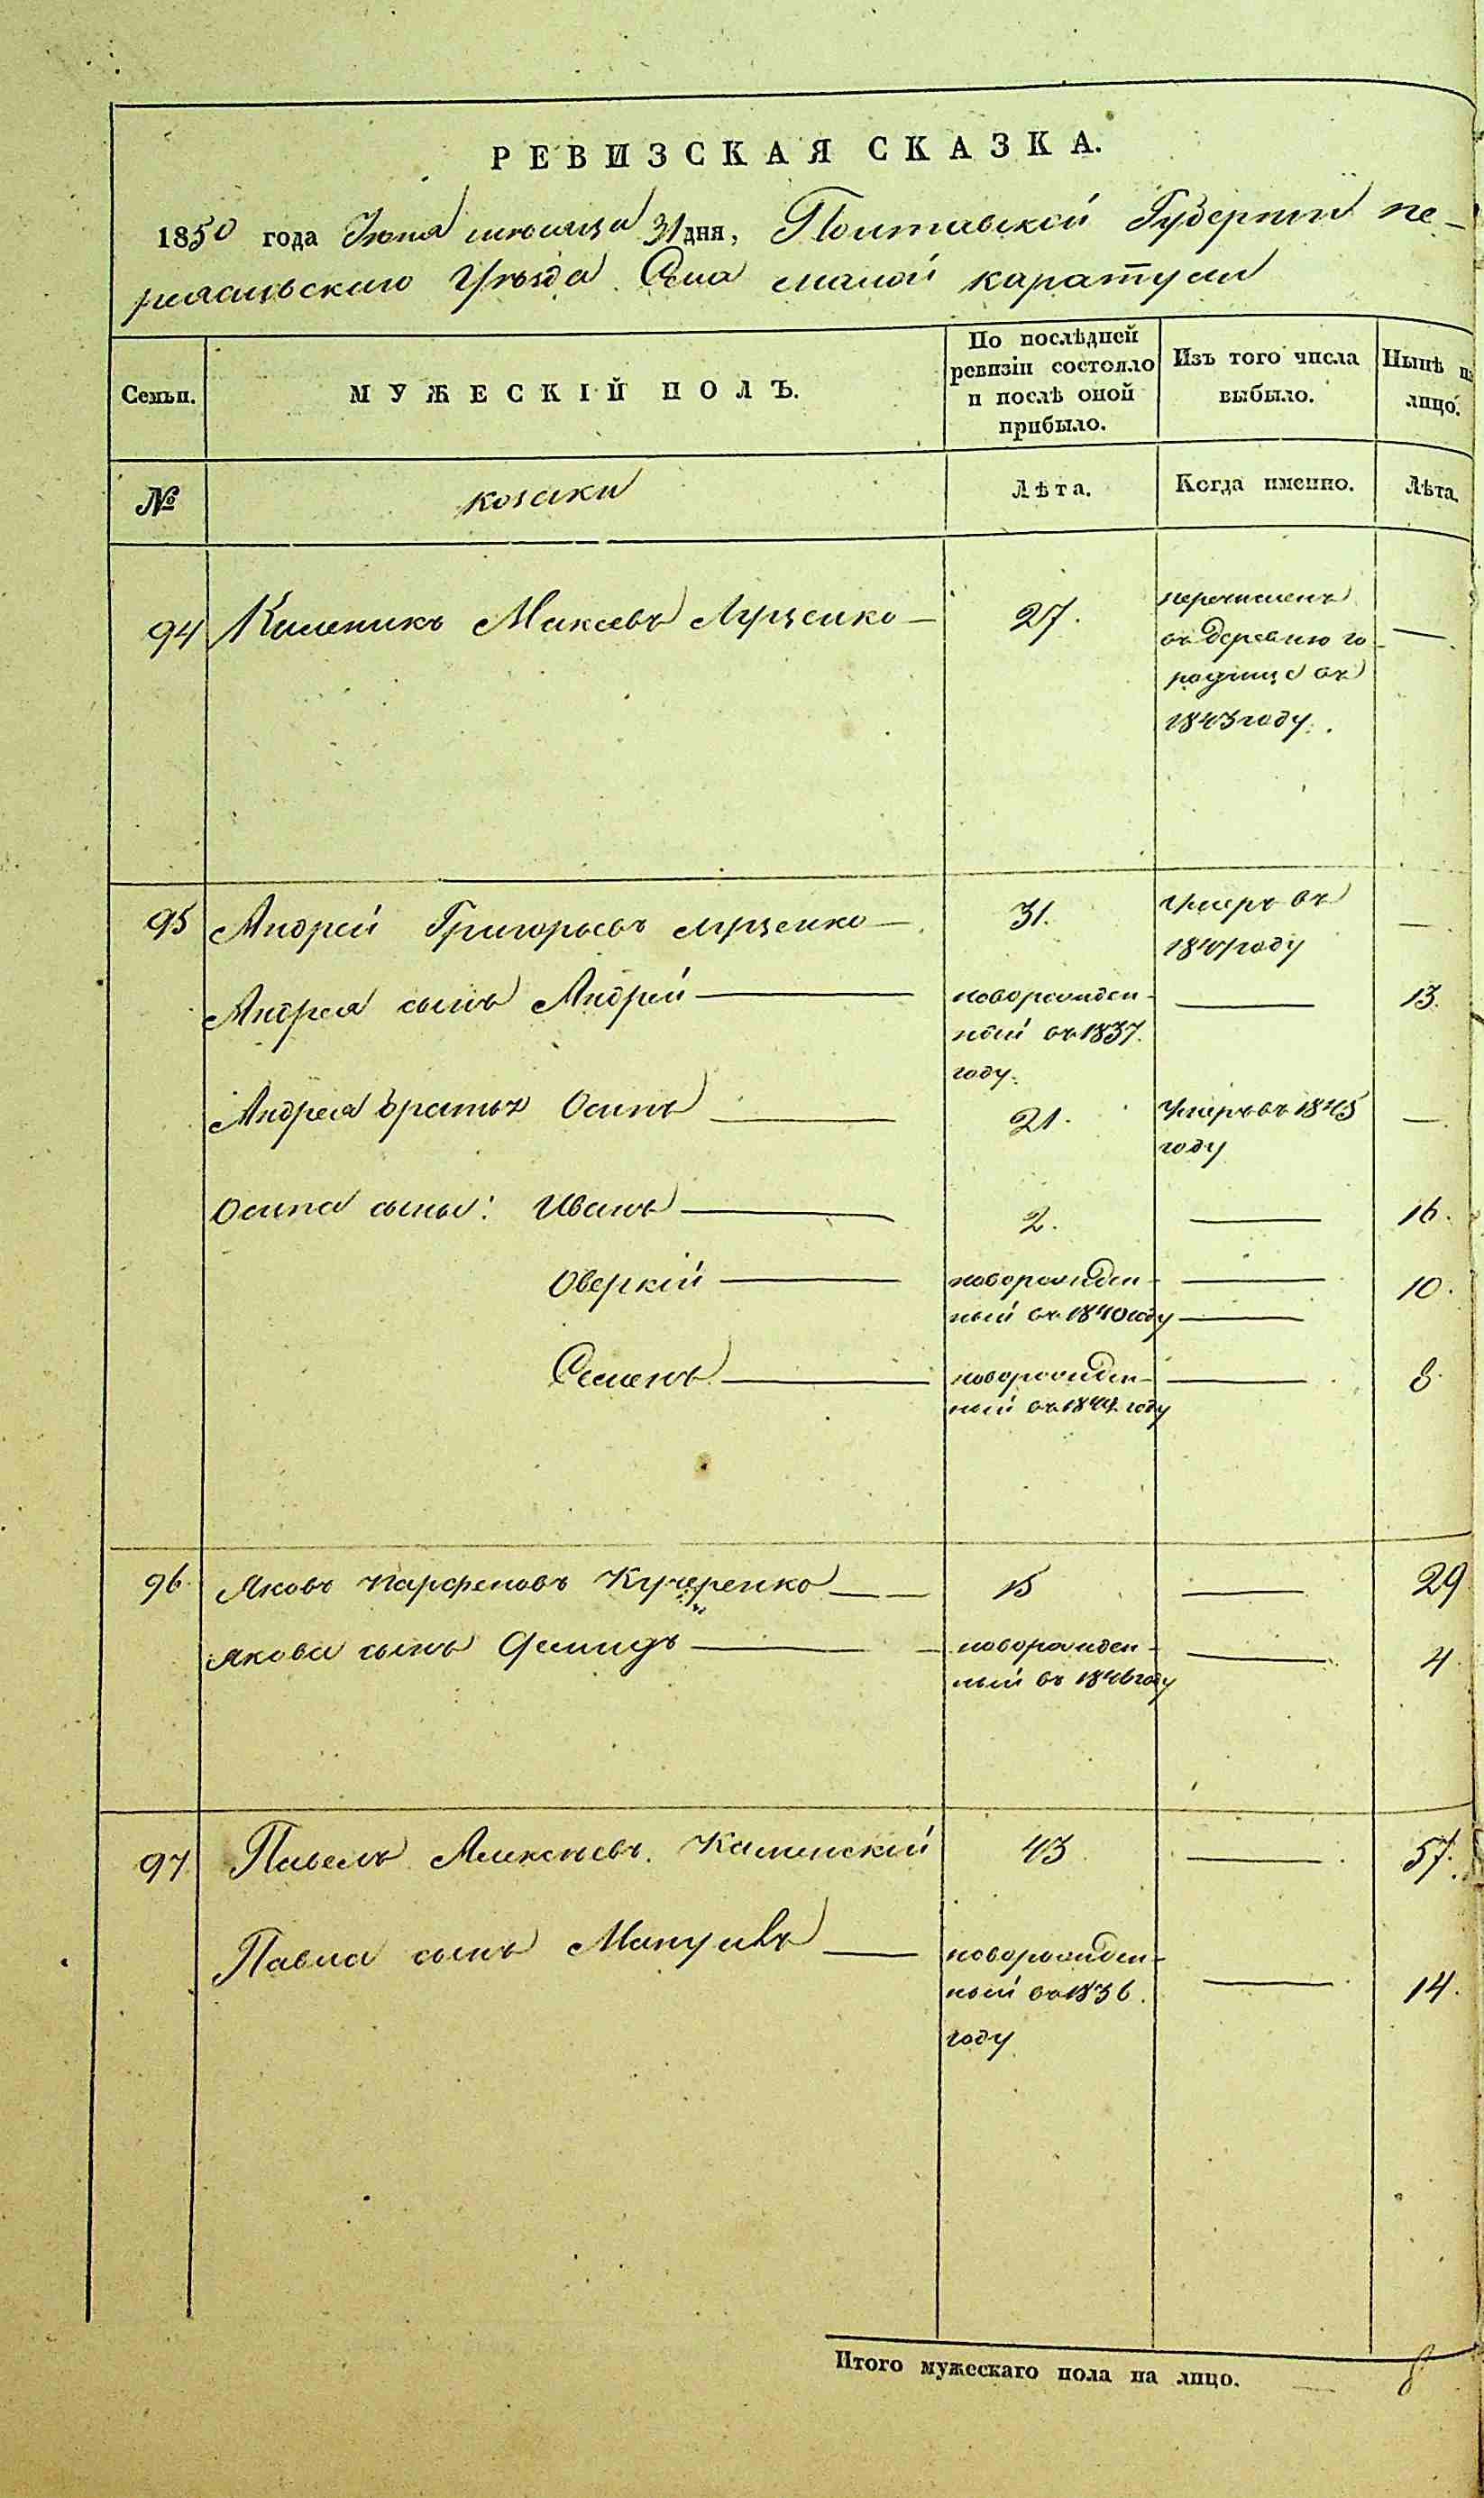 РЕВИЗСКАЯ СКАЗКА.
1850 года Июля месяца 31 дня, Полтавской Губернии пе-
реяславского Уѣзда Села малой каратули
Семьи.
МУЖЕСКІЙ ПОЛЪ.
По послѣдней
ревизіи состояло
и послѣ оной
прибыло.
Изъ того числа
выбыло.
Нынѣ на
лицо.
№
козаки
Лѣта.
Когда именно.
Лѣта.
94 Каленикъ Лущенко — 27. перечисленъ —
въ деревню го-
родище въ
1843 году.
95 Андрей Григорьевъ Лущенко — 31. Умеръ въ —
году
Андрея сынъ Андрей — новорожден- — 13.
ный въ 1837.
году.
Андрея братъ Осипъ — 21. Умеръ въ 1845 —
году
Осипа сыны: Иванъ — 2. — 16.
Оверкій — новорожден- — 10.
ный въ 1840 году —
Семенъ — новорожден- — 8.
ный въ году
96. Яковъ Парфеновъ Кучеренко — 15 — 29
Якова сынъ — новорожден- — 4.
ный въ 1846 году
97. Павелъ Алексѣевъ. Каминскій 43. — 57.
Павла сынъ — новорожден- — 14.
ный въ 1836.
году
Итого мужескаго пола на лицо. — 8